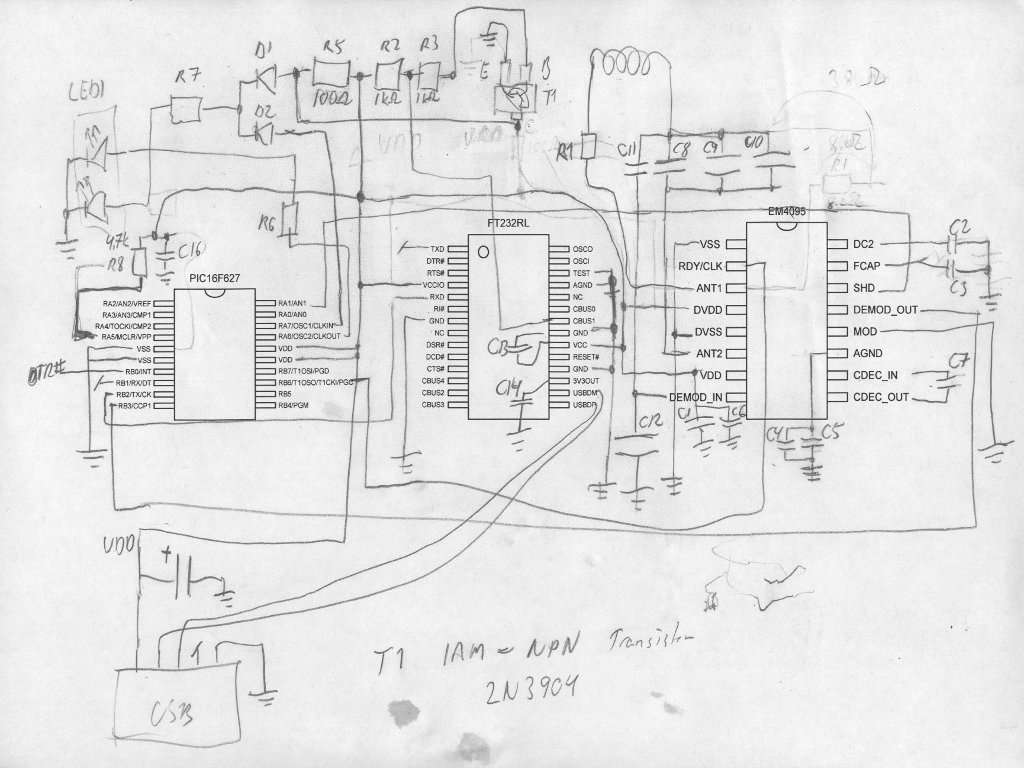 D1
R5
R2
R3
E
B
T1
R7
LED1
100Ω
1kΩ
1kΩ
D2
VDD
R1
C11
C8
C9
C10
R1
R6
4,7k
R8
C16
PIC16F627
FT232RL
EM4095
RA2/AN2/VREF
RA3/AN3/CMP1
RA4/TOCKI/CMP2
RA5/MCLR/VPP
VSS
VSS
RB0/INT
RB1/RX/DT
RB2/TX/CK
RB3/CCP1
RA1/AN1
RA0/AN0
RA7/OSC1/CLKIN
RA6/OSC2/CLKOUT
VDD
VDD
RB7/T1OSI/PGD
RB6/T1OSO/T1CKI/PGC
RB5
RB4/PGM
DTR#
TXD
DTR#
RTS#
VCCIO
RXD
RI#
GND
NC
DSR#
DCD#
CTS#
CBUS4
CBUS2
CBUS3
OSCO
OSCI
TEST
AGND
NC
CBUS0
CBUS1
GND
VCC
RESET#
GND
3V3OUT
USBDM
USBDP
C13
C14
VSS
RDY/CLK
ANT1
DVDD
DVSS
ANT2
VDD
DEMOD_IN
DC2
FCAP
SHD
DEMOD_OUT
MOD
AGND
CDEC_IN
CDEC_OUT
C2
C3
C7
C12
C1
C6
C4
C5
VDD
+
USB
T1 1AM = NPN Transistor
2N3904